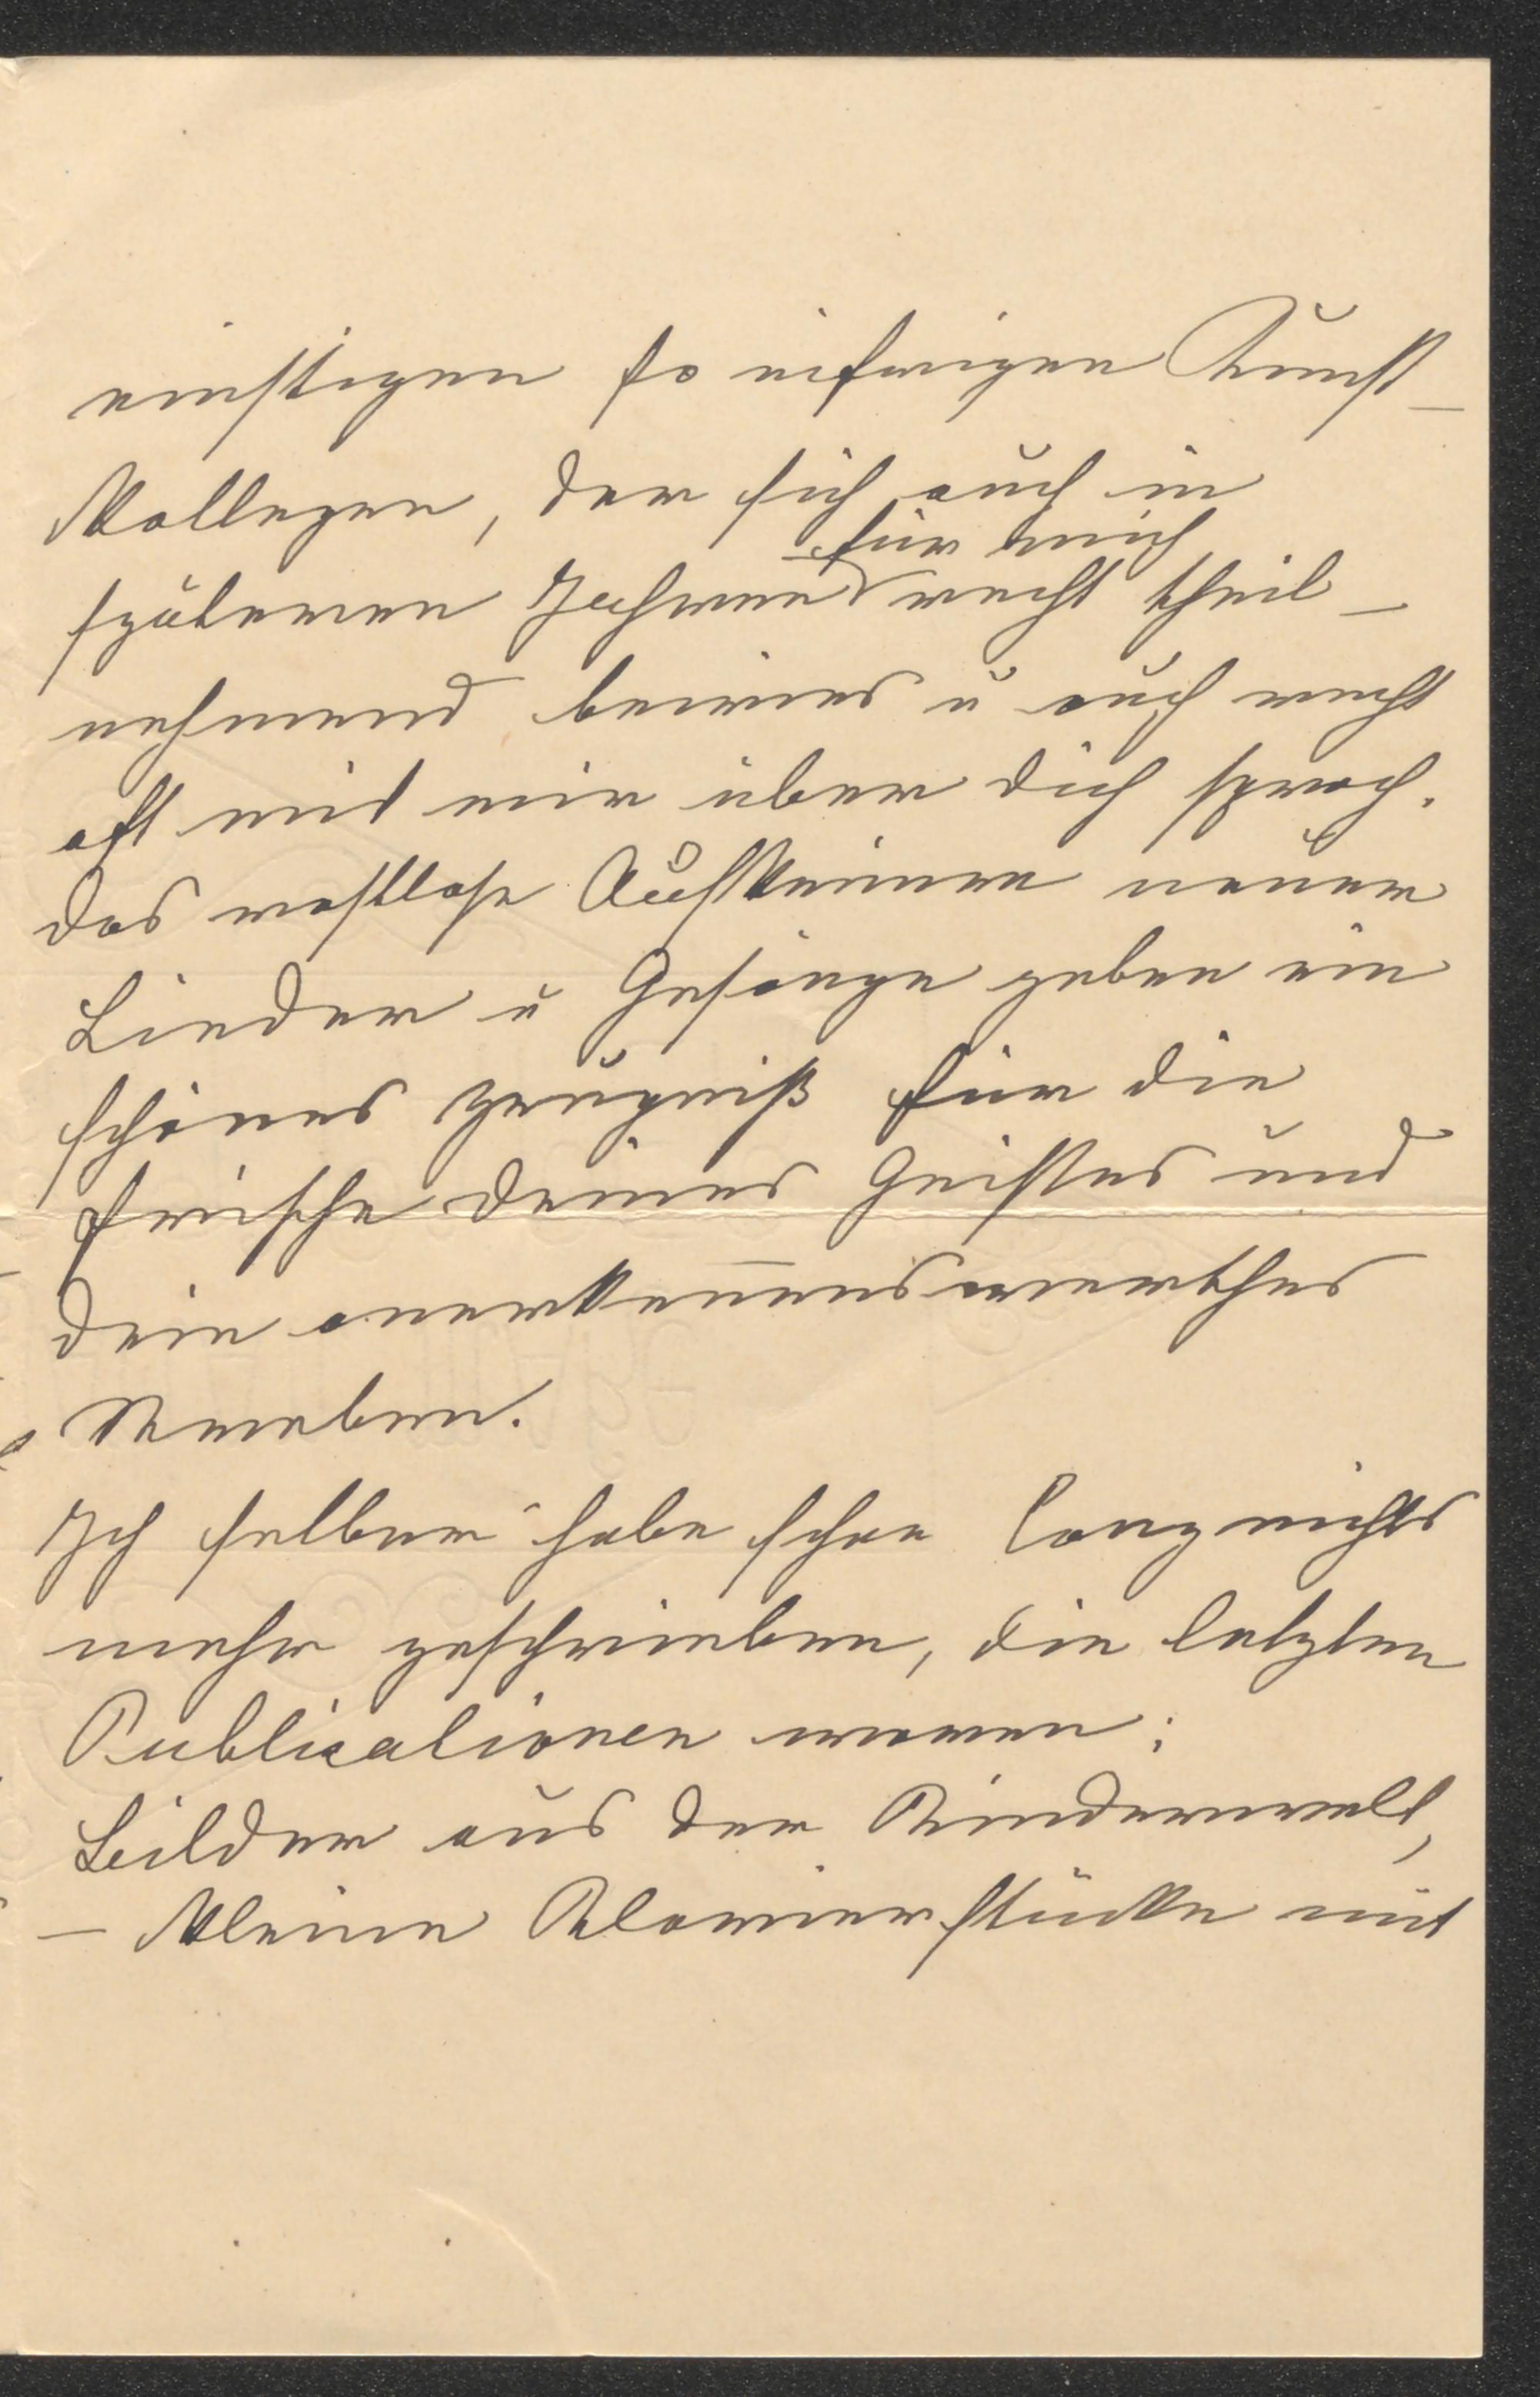 einstigen so eifrigen Kunst-
kollegen, der sich auch in
für mich
späteren Jahren recht theil-
nehmend bewies u auch recht
oft mit mir über dich sprach.
Das rastlose Aufkeimen neuer
Lieder u Gesänge geben ein
schönes Zeugniß für die
Frische deines Geistes und
dein anerkennenswerthes
Streben.
Ich selber habe schon lang nichts
mehr geschrieben, die letzten
Publicationen waren:
Bilder aus der Kinderwelt,
– kleine Klavierstücke mit